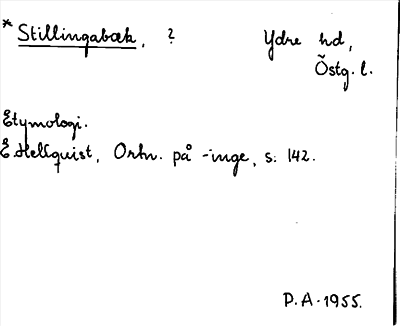 *Stillingabæk, ? Ydre hd,
Östg. l.
Etymologi.
E. Hellquist, Ortn. på -inge, s. 142.
P.A. 1955.